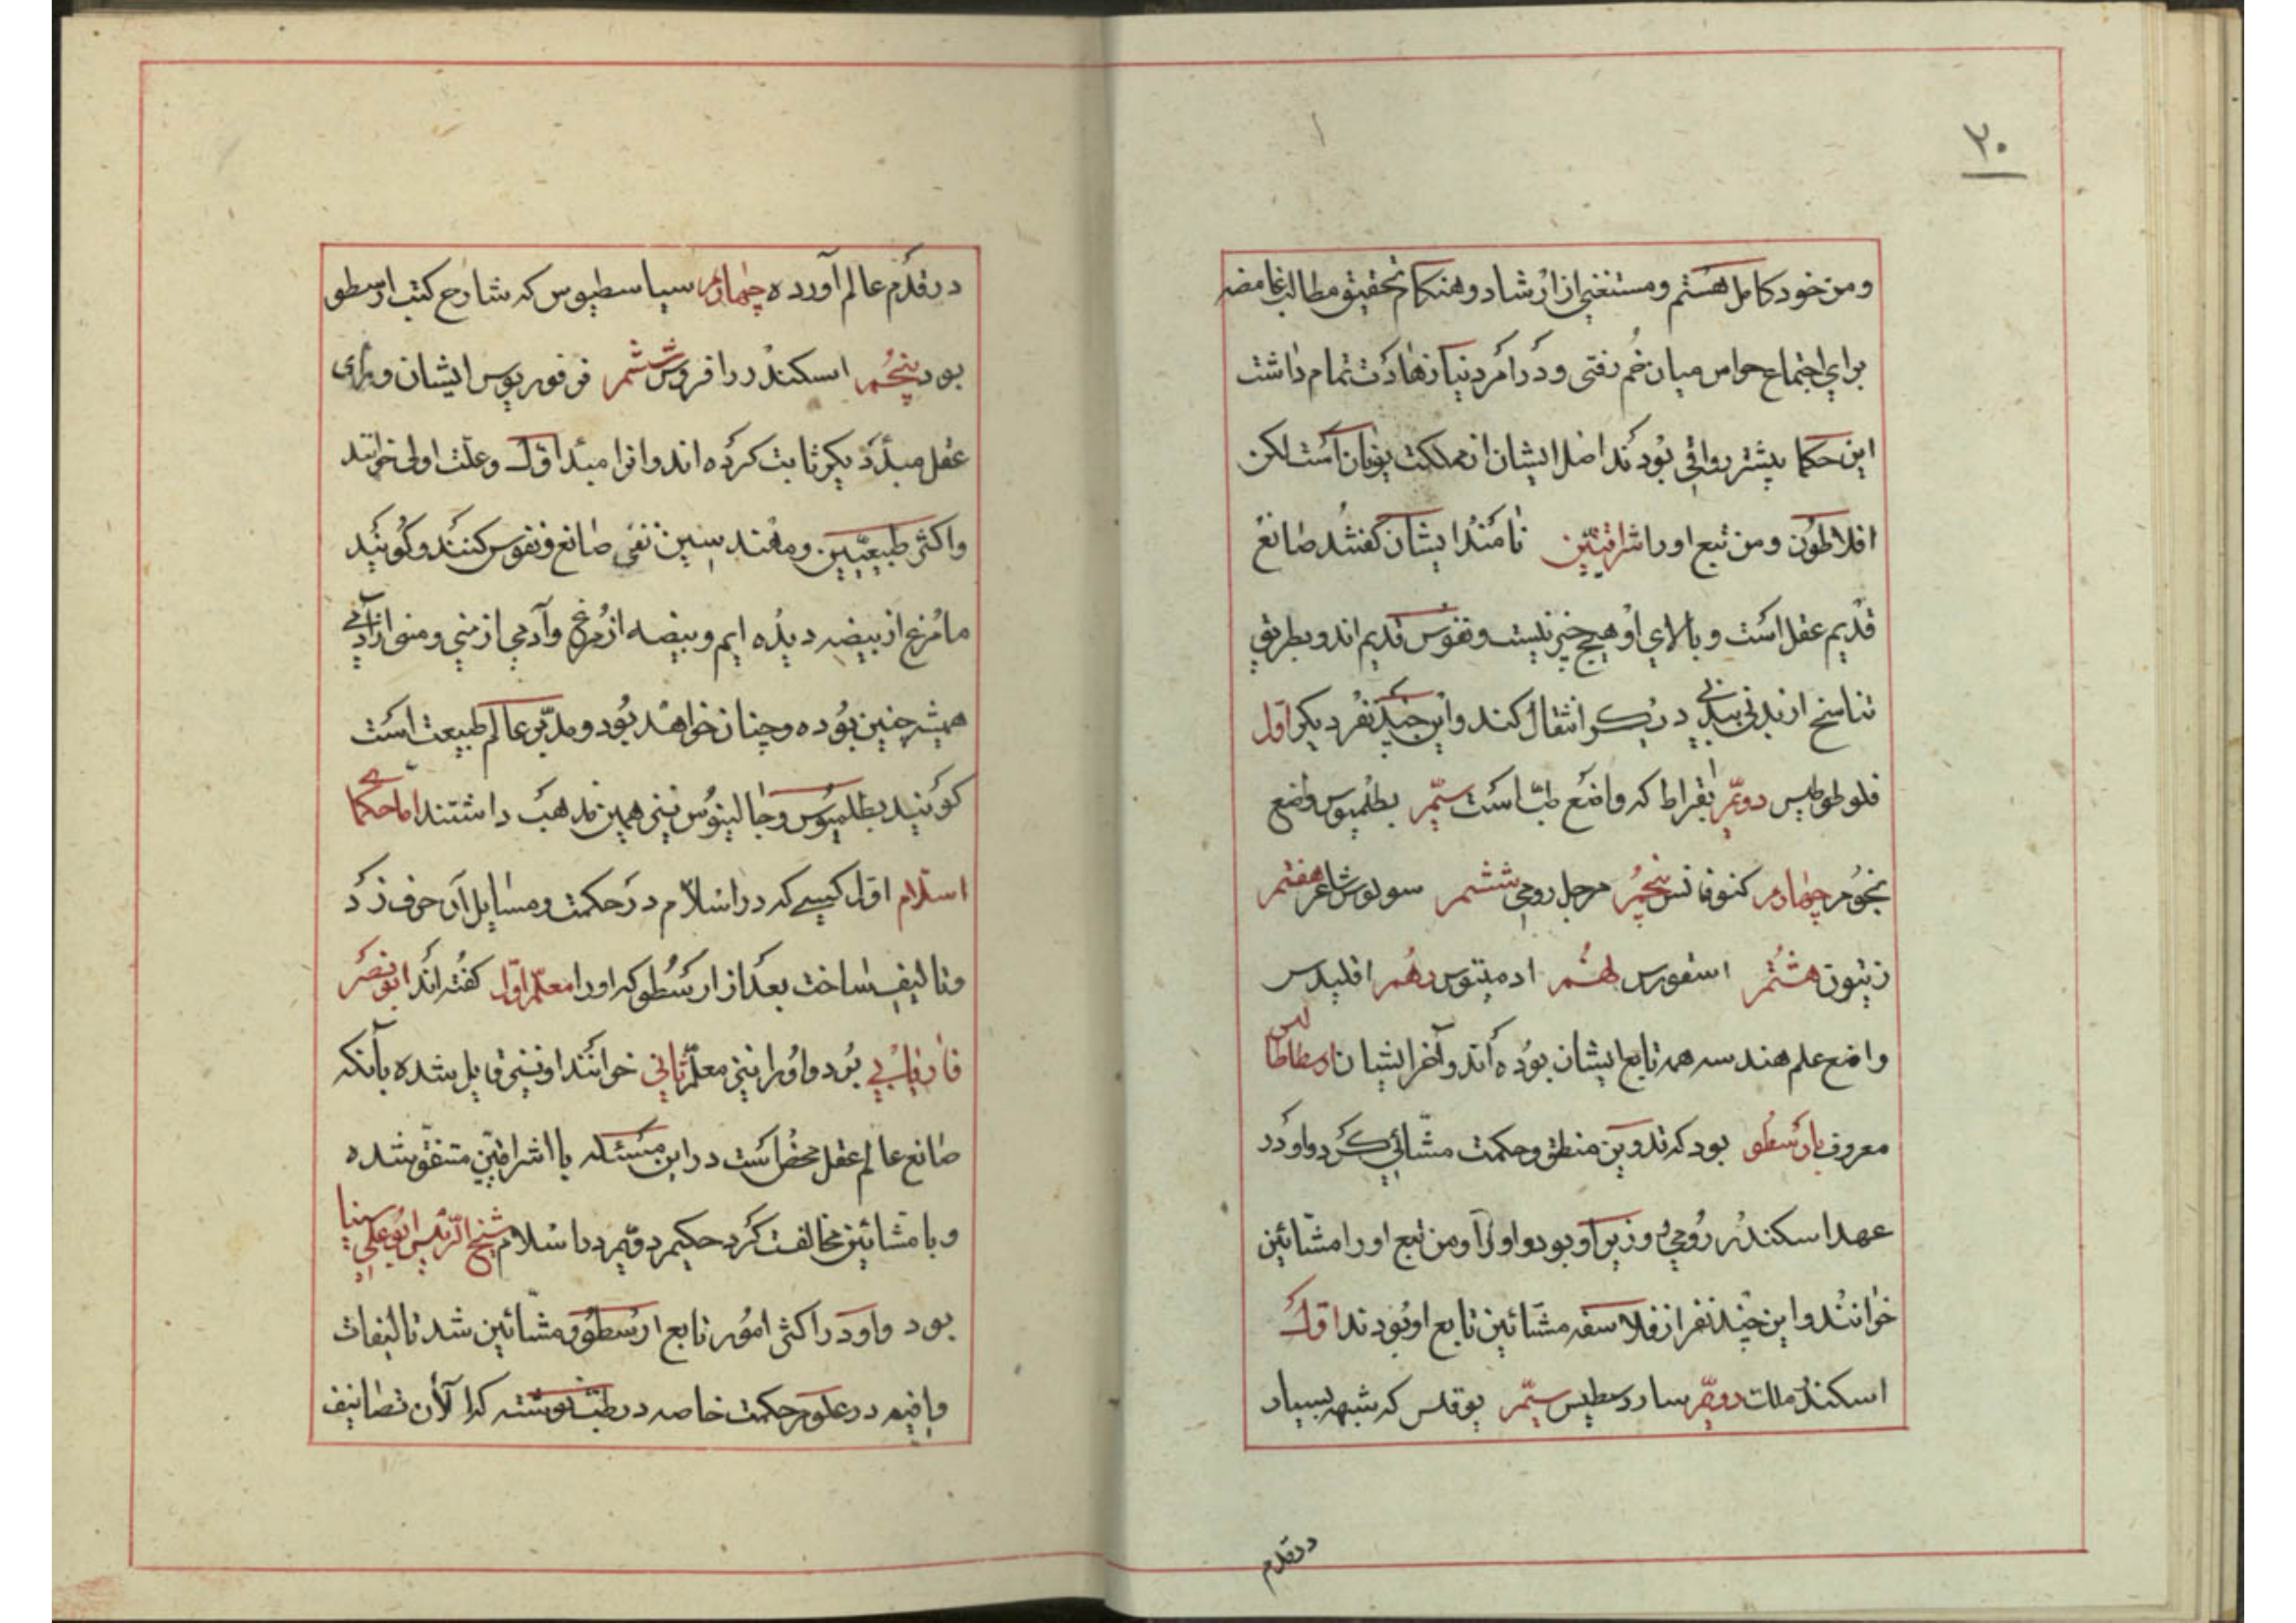 ۳۰
ومن خود کامل هستم ومستغنی از ارشاد وهنکام تحقیق مطالب غامضه
برای اجتماع حواس میان خم رفتی ودر امر دنیا زهادت تمام داشت
این حکما بیشتر رواقی بودند اصل ایشان از مملکت یونان است لکن
افلاطون ومن تبع اورا اشراقیین نامند ایشان کفتند صانع
قدیم عقل است وبالای او هیچ چیز نیست ونفوس قدیم اند وبطریق
تناسخ از بدنی ببدنی دیکر انتقال کند واین چند نفر دیکر اول
فلوطوطیس دویم بقراط که واضع طب است سیم بطلمیوس واضع
نجوم چهارم کنوفانس پنجم مرجل رومی ششم سولوس شاعر هفتم
زیتون هشتم اسفورس نهم ادمیتوس دهم اقلیدس
واضع علم هندسه همه تابع ایشان بوده اند وآخر ایشان ارسطاطالیس
معروف بارسطو بود که تدوین منطق وحکمت مشائی کرد واو در
عهد اسکندر رومی وزیر او بود واو را ومن تبع اورا مشائین
خوانند واین چند نفر از فلاسفه مشائین تابع او بودند اول
اسکندر ملات دویم سارد سطیس سیم بوقلس که شبهه بسیار
درقدم
درقدم عالم آورده چهارم سیاسطیوس که شارح کتب ارسطو
بود پنجم اسکندر رافروس ششم فرفوریوس ایشان ورای
عقل مبدأ دیکر ثابت کرده اند وانرا مبدأ اول وعلت اولی خوانند
واکثر طبیعیین ومهندسین نفی صانع ونفوس کنند وکویند
ما مرغ از بیضه دیده ایم وبیضه از مرغ وآدمی از منی ومنی از آدمی
همیشه چنین بوده وچنان خواهد بود ومدبر عالم طبیعت است
کویند بطلمیوس وجالینوس نیز همین مذهب داشتند اما حکمای
اسلام اول کسی که در اسلام در حکمت ومسایل آن حرف زد
وتالیف ساخت بعد از ارسطو که اورا معلم اول کفته اند ابو نصر
فاریابی بود واورا نیز معلم ثانی خوانند او نیز قایل شده بآنکه
صانع عالم عقل محض است در این مسئله با اشراقیین متفق شده
وبا مشائین مخالفت کرد حکیم دویم در اسلام شیخ الرئیس ابو علی سینا
بود واو در اکثر امور تابع ارسطو ومشائین شد تالیفات
وافیه در علوم حکمت خاصه در طب نوشته که الی الآن تصانیف